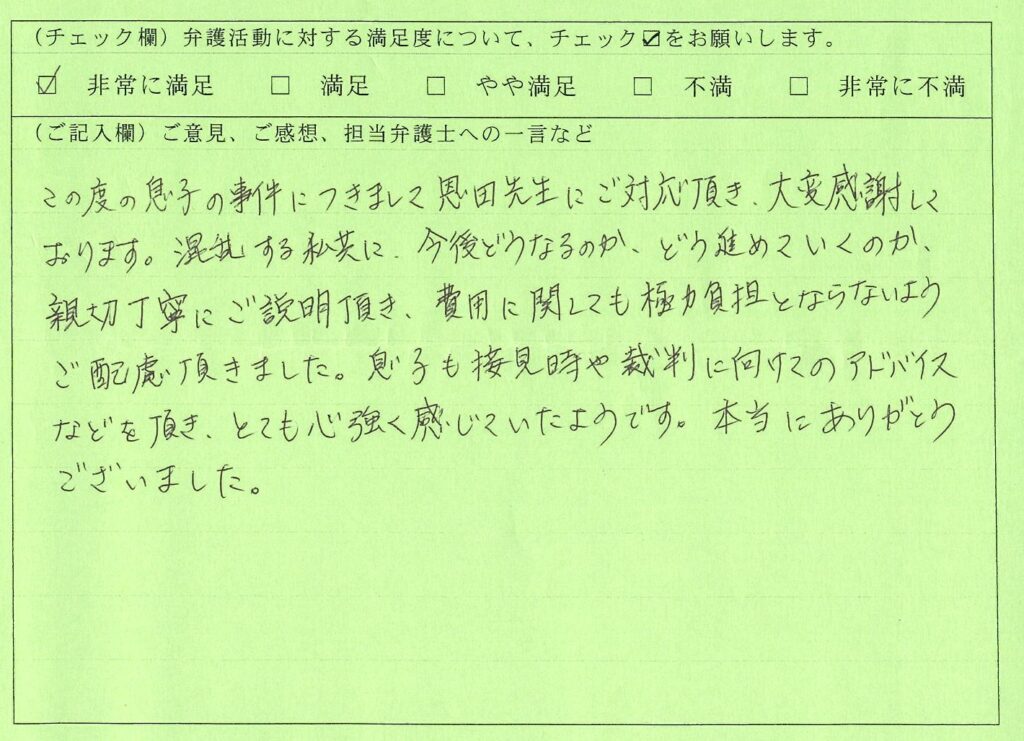 (チェック欄) 弁護活動に対する満足度について、チェック☑をお願いします。
☑ 非常に満足 □ 満足 □ やや満足 □ 不満 □ 非常に不満
(ご記入欄) ご意見、ご感想、担当弁護士への一言など
この度の息子の事件につきまして恩田先生にご対応頂き、大変感謝して
おります。混乱する私共に、今後どうなるのか、どう進めていくのか、
親切丁寧にご説明頂き、費用に関しても極力負担とならないよう
ご配慮頂きました。息子も接見時や裁判に向けてのアドバイス
などを頂き、とても心強く感じていたようです。本当にありがとう
ございました。